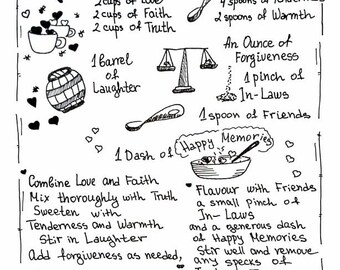 2 cups of Love
2 cups of Faith
2 cups of Truth
4 spoons of Tenderness
2 spoons of Warmth
1 barrel
of
Laughter
An Ounce of
Forgiveness
1 pinch of
In-Laws
1 spoon of Friends
1 Dash of Happy Memories
Combine Love and Faith
Mix thoroughly with Truth
Sweeten with
Tenderness and Warmth
Stir in Laughter
Add forgiveness as needed,
Flavour with Friends
a small pinch of
In-Laws
and a generous dash
of Happy Memories
Stir well and remove
any specks of